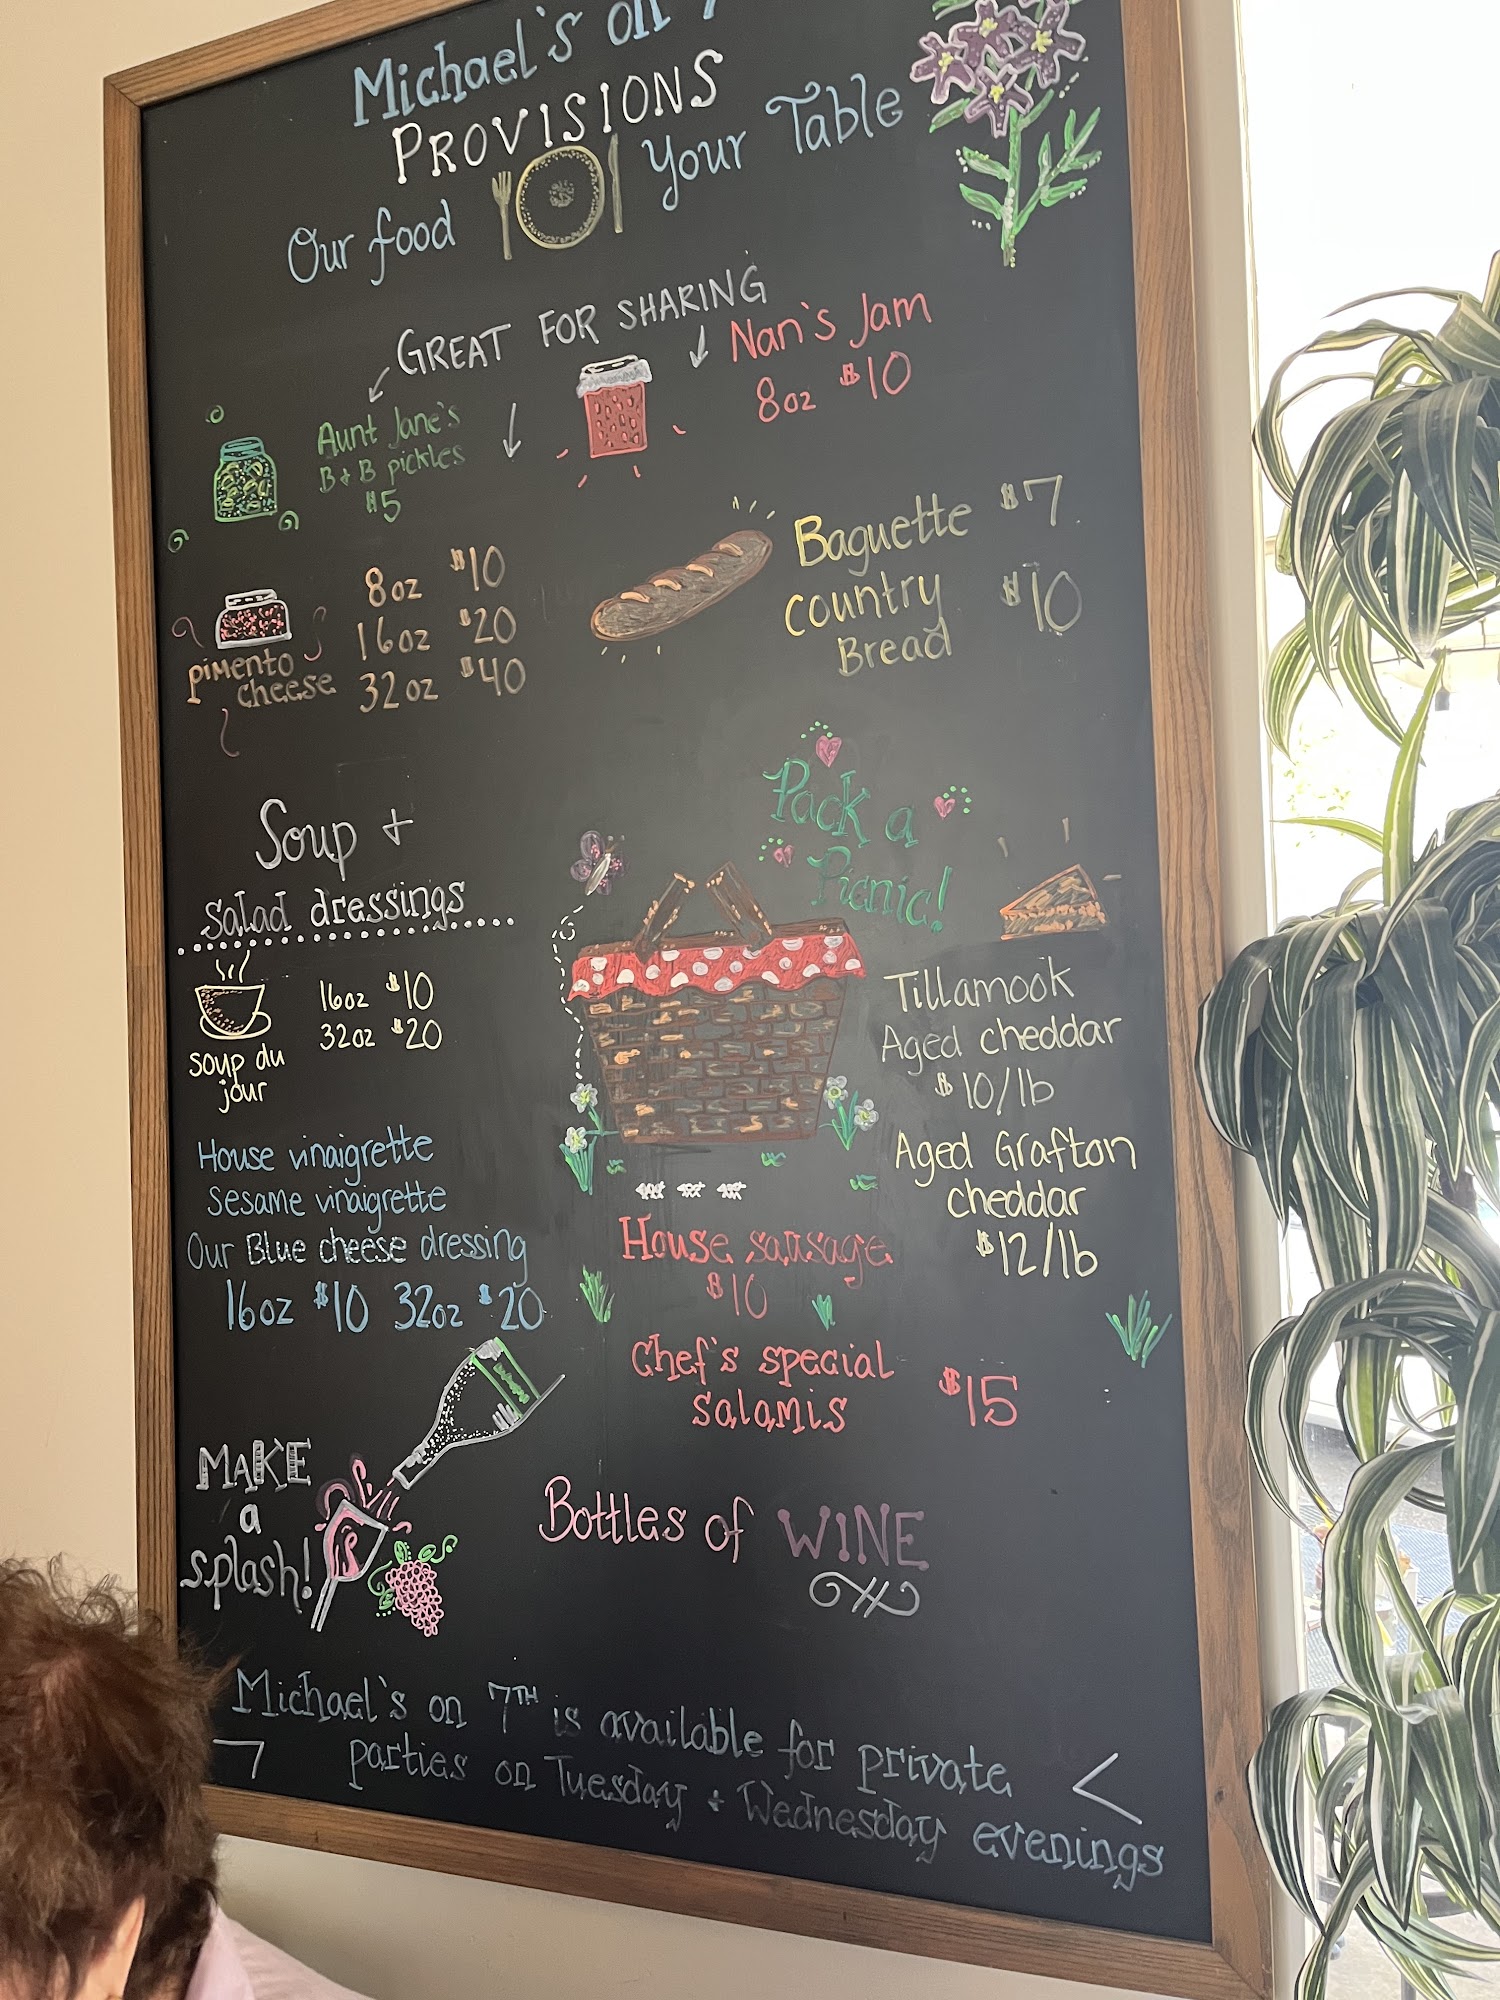 Michael's on 7
PROVISIONS
Our food Your Table
GREAT FOR SHARING
Aunt Jane's
B+B pickles
$5
Nan's Jam
8oz $10
pimento
cheese
8oz $10
16oz $20
32oz $40
Baguette $7
Country
Bread $10
Soup +
salad dressings
soup du
jour
16oz $10
32oz $20
House vinaigrette
Sesame vinaigrette
Our Blue cheese dressing
16oz $10 32oz $20
Pack a
Picnic!
Tillamook
Aged cheddar
$10/lb
Aged Grafton
cheddar
$12/lb
House sausage
$10
Chef's special
salamis $15
MAKE
a
splash!
Bottles of WINE
Michael's on 7TH is available for private
parties on Tuesday + Wednesday evenings